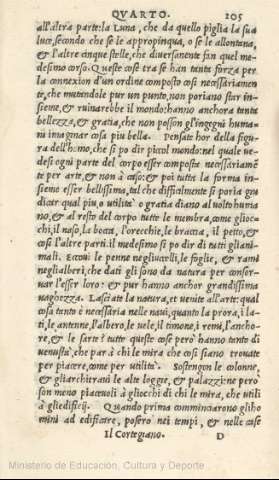 QVARTO. 205
all'altra parte: la Luna, che da quello piglia la sua
luce, secondo che se le appropinqua, o se le allontana,
& l'altre cinque stelle, che diuersamente fan quel me-
desimo corso. Queste cose tra se han tanta forza per
la connexion d'un ordine composto cosi necessariamen-
te, che mutandole pur un punto, non poriano star in-
sieme, & ruinarebbe il mondo: hanno anchora tanta
bellezza, & gratia, che non posson gl'ingegni huma-
ni imaginar cosa piu bella. Pensate hor della figu-
ra dell'homo, che si po dir piccol mondo: nel quale ue-
desi ogni parte del corpo esser composta necessariamē-
te per arte, & non à caso: & poi tutta la forma in-
sieme esser bellissima, tal che difficilmente si poria giu
dicar qual piu, o utilità o gratia diano al uolto huma
no, & al resto del corpo tutte le membra, come glioc-
chi, il naso, la bocca, l'orecchie, le braccia, il petto, &
cosi l'altre parti. il medesimo si po dir di tutti gliani-
mali. Eccoui le penne negliucelli, le foglie, & rami
neglialberi, che dati gli sono da natura per conser-
uar l'esser loro: & pur hanno anchor grandissima
uaghezza. Lasciate la natura, & uenite all'arte: qual
cosa tanto è necessaria nelle naui, quanto la prora, i la-
ti, le antenne, l'albero, le uele, il timone, i remi, l'ancho-
re, & le sarte? tutte queste cose però hanno tanto di
uenustà, che par à chi le mira che cosi siano trouate
per piacere, come per utilità. Sostengon le colonne,
& gliarchitraui le alte loggie, & palazzi: ne però
son meno piaceuoli à gliocchi di chi le mira, che utili
à gliedificij. Quando prima cominciarono gliho
mini ad edificare, posero nei tempi, & nelle case
Il Cortegiano. D
Ministerio de Educación, Cultura y Deporte